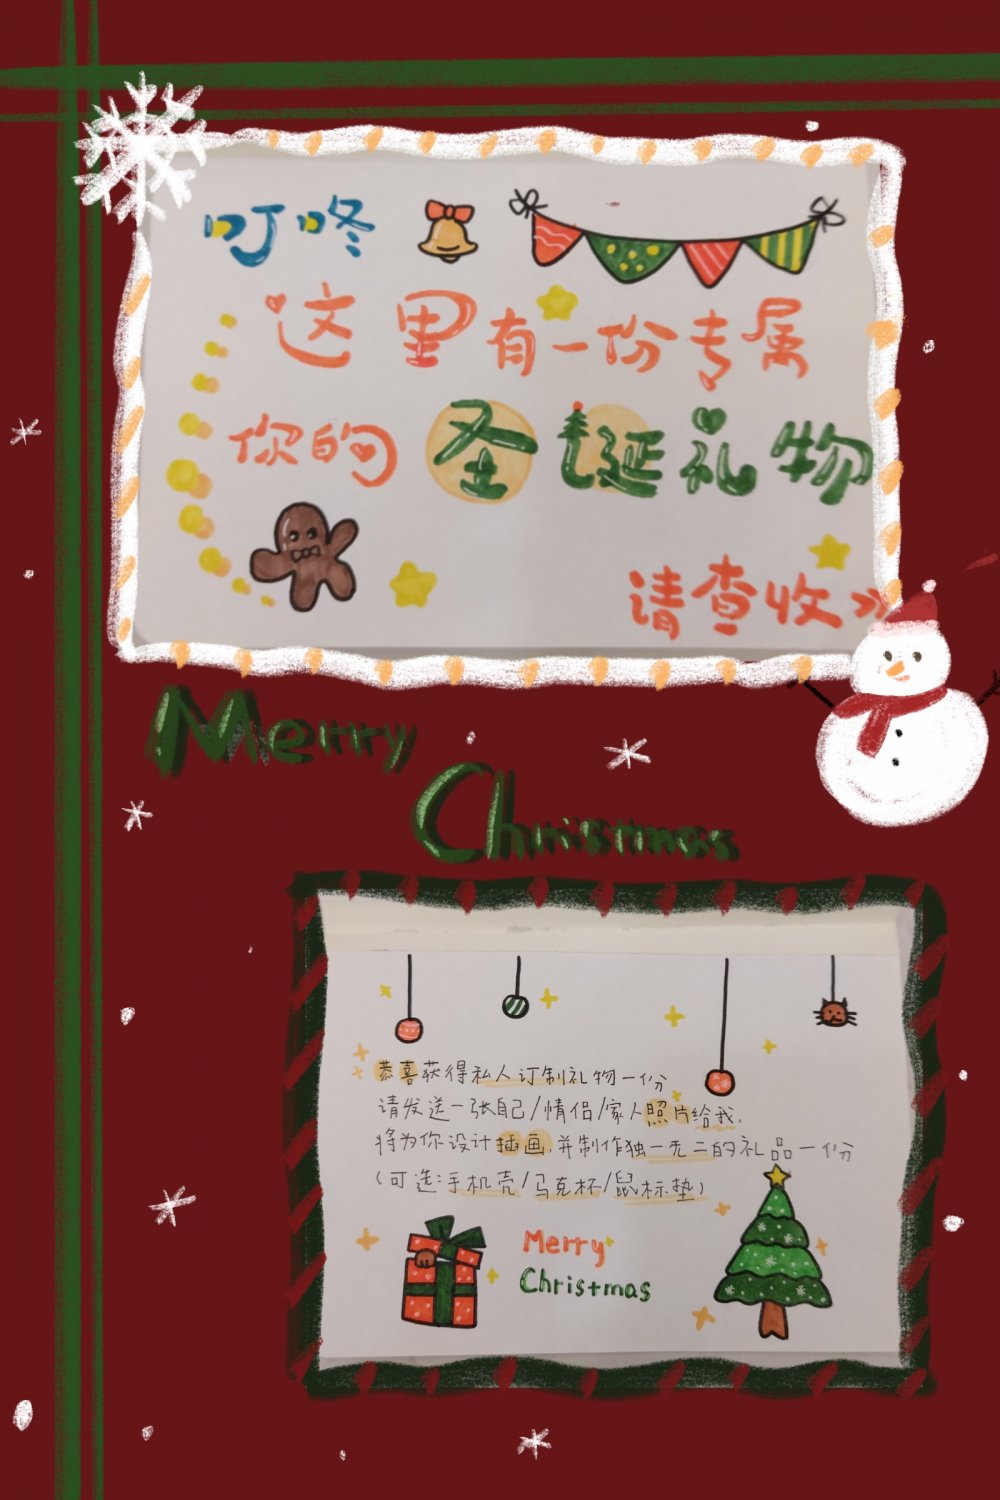 叮咚
这里有一份专属
你的圣诞礼物
请查收》
Merry
Christmas
恭喜获得私人订制礼物一份
请发送一张自己/情侣/家人照片给我,
将为你设计插画,并制作独一无二的礼品一份
(可选:手机壳/马克杯/鼠标垫)
Merry
Christmas